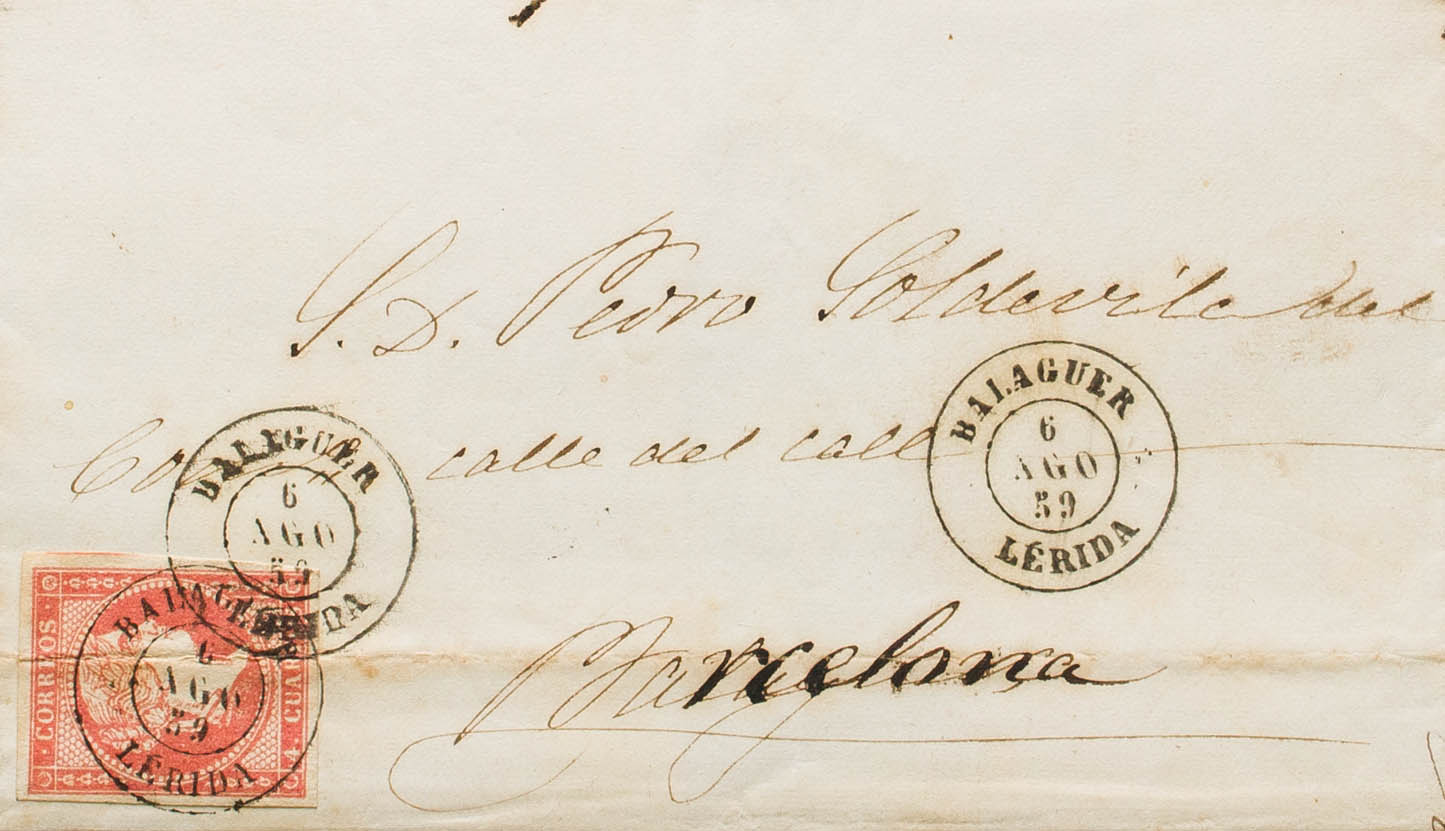 S. D. Pedro Soldevila del
calle del call
Barcelona
BALAGUER
6
AGO
59
LÉRIDA
BALAGUER
6
AGO
59
LÉRIDA
BALAGUER
6
AGO
59
LÉRIDA
CORREOS
4 CUAR